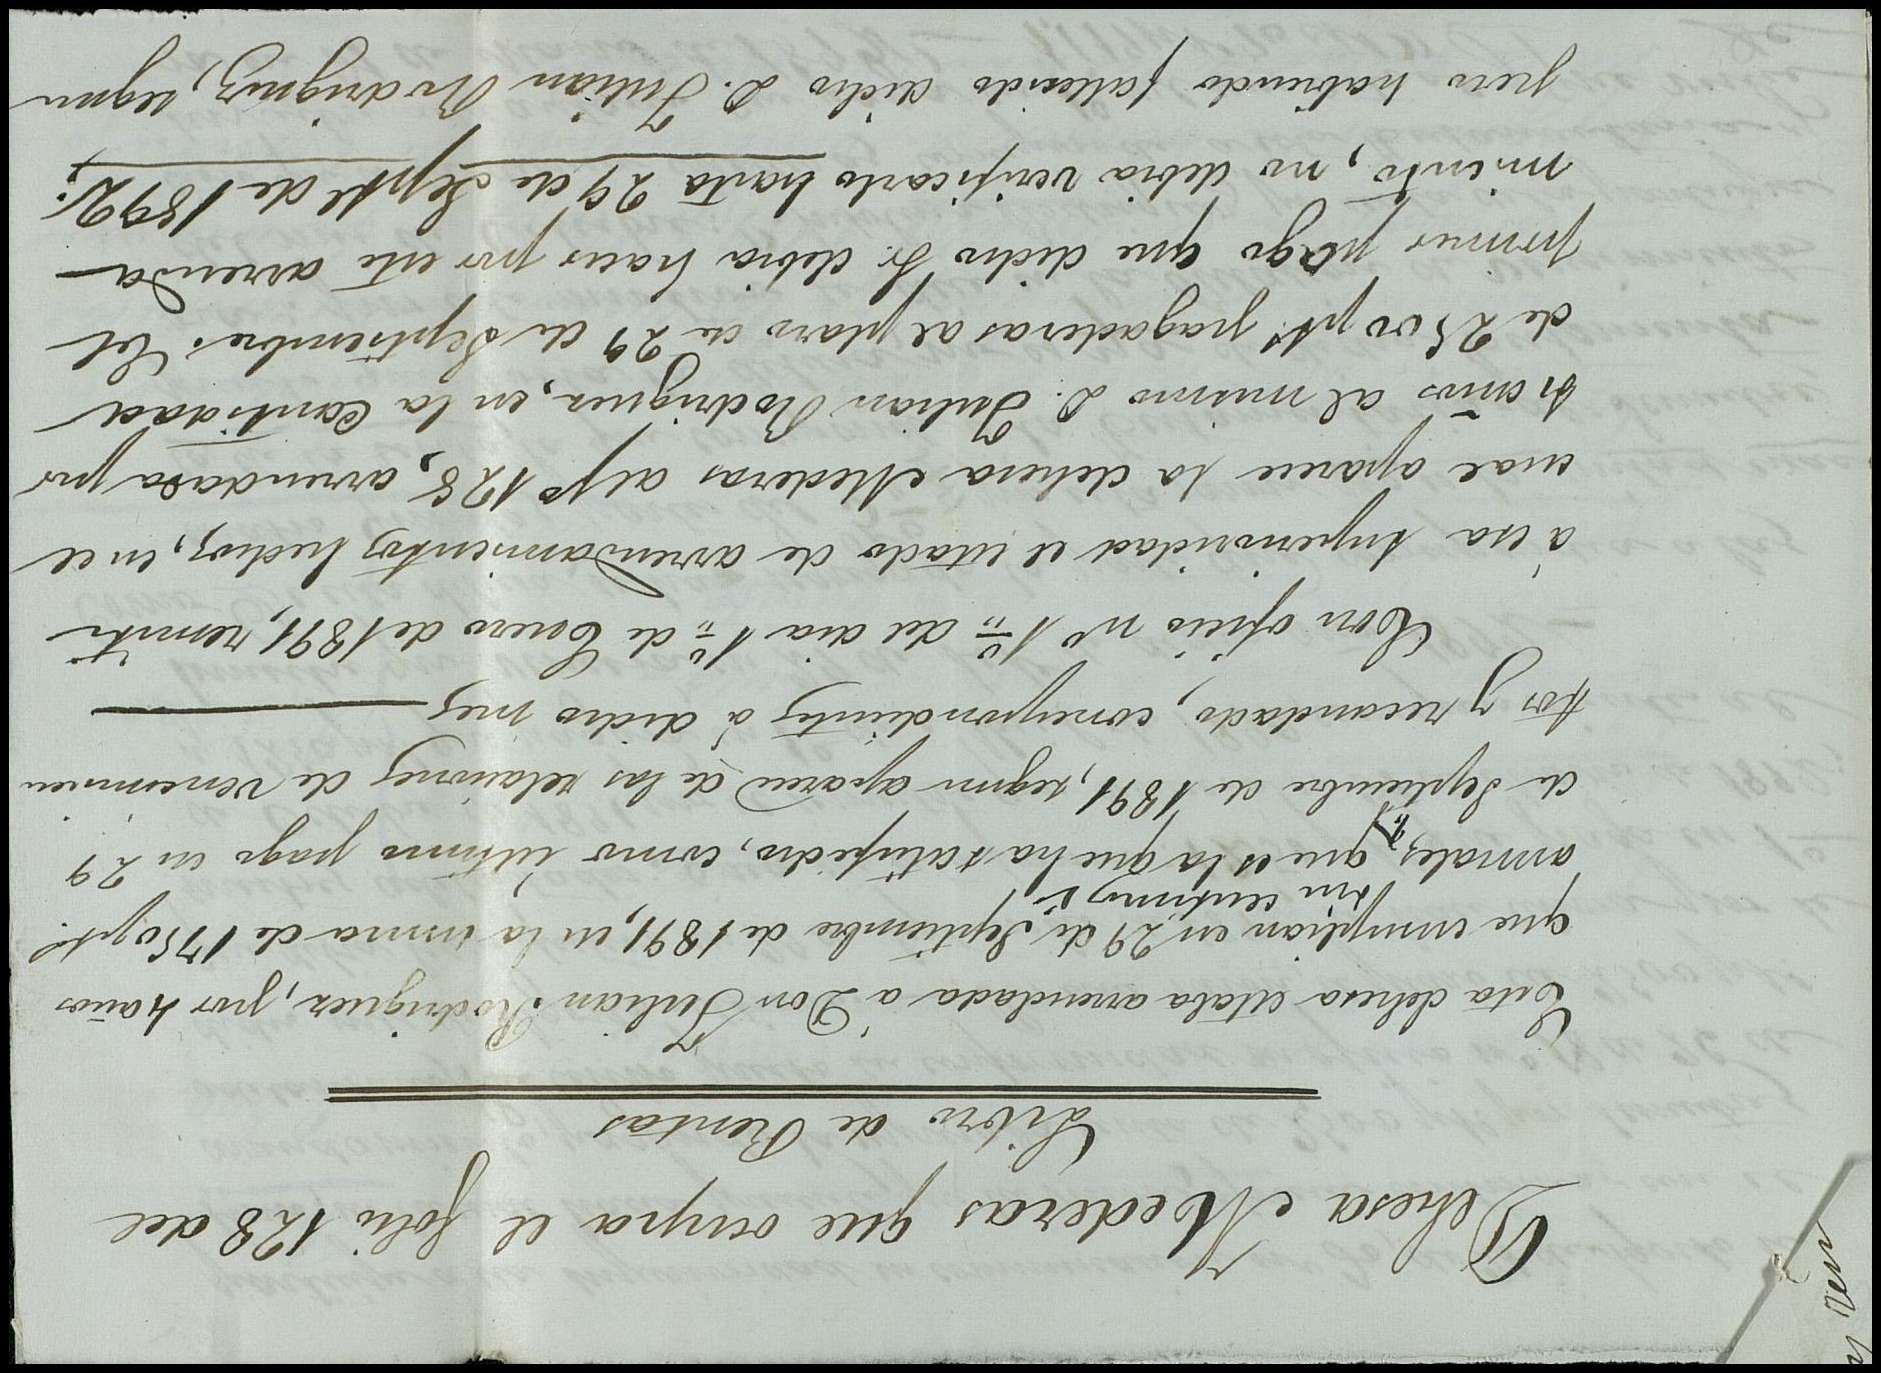 Dehesa Mederas que ocupa el folio 128 del
Libro de Rentas
Esta dehesa estaba arrendada á Don Julian Rodriguez, por 4 años
que cumplian en 29 de Septiembre de 1891, en la suma de 1750 pts.
sin centimos
anuales, que es la que ha satisfecho, como último pago en 29
de Septiembre de 1891, segun aparece de las relaciones de vencimien
tos y recaudado, correspondientes á dicho mes
Con oficio nº 1º del dia 1º de Enero de 1891, remiti
á esa Superioridad el estado de arrendamientos hechos, en el
cual aparece la dehesa Mederas al fº 128, arrendada por
4 años al mismo D. Julian Rodriguez, en la cantidad
de 2500 pts. pagaderas al plazo de 29 de Septiembre. El
primer pago que dicho Sr. debia hacer por este arrenda-
miento, no debia verificarlo hasta 29 de Septe. de 1892;
pero habiendo fallecido dicho D. Julian Rodriguez, segun